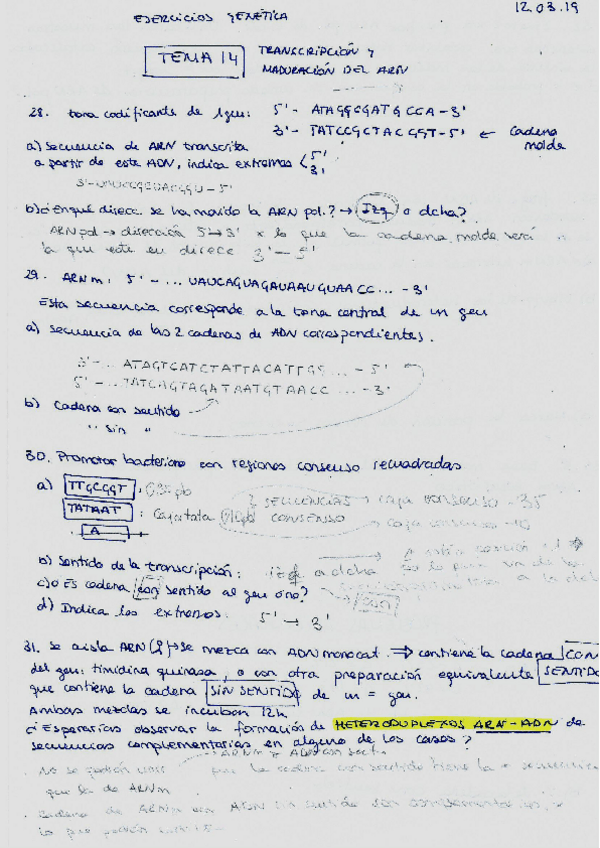 EJERCICIOS GENÉTICA
12.03.19
TEMA 14
TRANSCRIPCIÓN Y
MADURACIÓN DEL ARN
28. Zona codificante de 1 gen: 5'- ATAGGCGATGCCA-3'
3'- TATCCGCTACGGT-5' ← Cadena
molde
a) Secuencia de ARN transcrita
a partir de este ADN, indica extremos < 5'
3'
b) ¿En qué direcc. se ha movido la ARN pol.? → Izq o dcha?
ARNpol → dirección 5'→3' x lo que la cadena molde será
la que esté en direcc 3'-5'
29. ARNm: 5'- ... UAUCAGUAGAUAAUGUAACC... -3'
Esta secuencia corresponde a la zona central de un gen
a) Secuencia de las 2 cadenas de ADN correspondientes.
3'-.. ATAGTCATCTATTACATTGG ... - 5'
5'-... TATCAGTAGATAATGTAACC ... -3'
b) Cadena con sentido
" sin "
30. Promotor bacteriano con regiones consenso recuadradas
a) TTGCGGT
TATAAT
A
2 SECUENCIAS → caja consenso -35
CONSENSO → caja consenso -10
b) Sentido de la transcripción: izq a dcha
c) ¿Es cadena con sentido al gen o no? CON
d) Indica los extremos: 5' → 3'
31. Se aísla ARN → se mezcla con ADN monocat. ⇒ contiene la cadena CON
del gen: timidina quinasa, o con otra preparación equivalente SENTIDO
que contiene la cadena SIN SENTIDO de un = gen.
Ambas mezclas se incuban 12h
¿Esperarías observar la formación de HETERODUPLEXOS ARN-ADN de
secuencias complementarias en alguno de los casos?
No se podrán unir la cadena con sentido tiene la = secuencia
que la de ARNm
Cadena de ARNm con ADN sin sentido son complementarias,